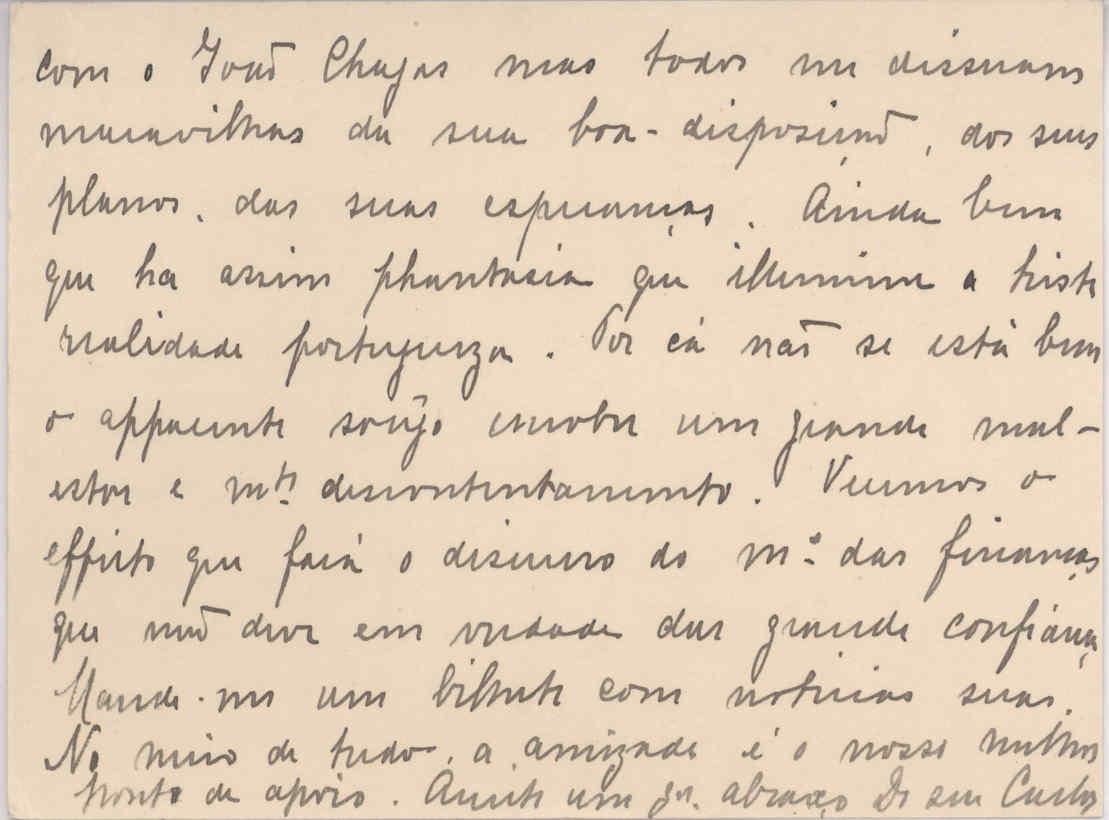 com o João Chagas mas todos me disseram
maravilhas da sua boa-disposição, dos seus
planos, das suas esperanças. Ainda bem
que ha assim phantasia que illumine a triste
realidade portugueza. Por cá não se está bem
o apparente socêgo encobre um grande mal-
estar e mto. descontentamento. Veremos o
effeito que fará o discurso do mo. das finanças
que não deve em verdade dar grande confiança
Mande-me um bilhete com noticias suas.
No meio de tudo, a amizade é o nosso melhor
ponto de apoio. Aceite um gr. abraço Do seu Carlos